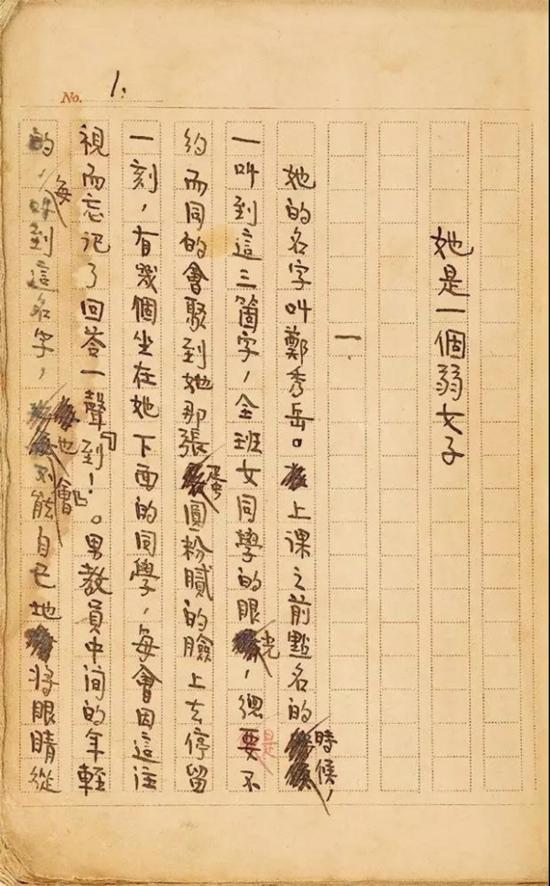 No. 1.
她是一個弱女子
一
她的名字叫鄭秀岳。上课之前點名的時候，
一叫到這三箇字，全班女同學的眼光，總要不
約而同的會聚到她那張蛋圓粉膩的臉上去停留
一刻，有幾個坐在她下面的同學，每會因這注
視而忘记了回答一聲『到！』。男教員中间的年輕
的，每叫到這名字，也會不能自已地將眼睛從